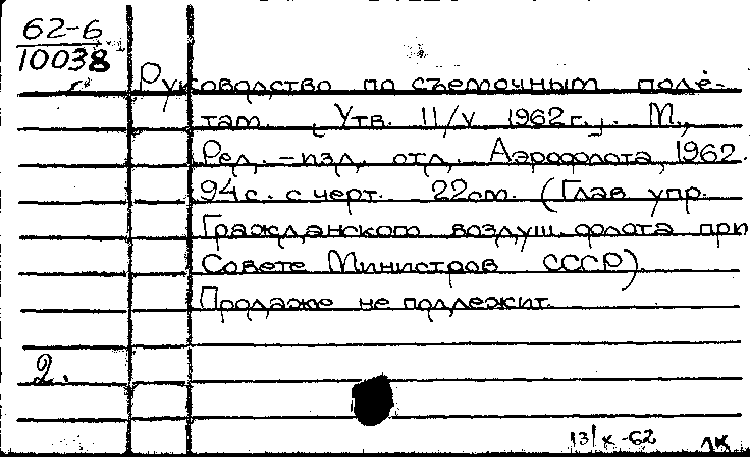 62-6
10038
Руководство по съемочным полё-
там. [Утв. 11/V 1962 г.]. М.,
Ред.-изд. отд. Аэрофлота, 1962.
94 с. с черт. 22 cm. (Глав упр.
Гражданского воздуш. флота при
Совете Министров СССР)
Продаже не подлежит.
2.
13/X-62 ЛК